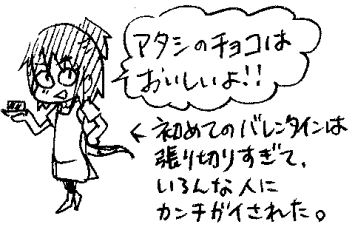 アタシのチョコは
おいしいよ!!
←初めてのバレンタインは
張り切りすぎて、
いろんな人に
カンチガイされた。